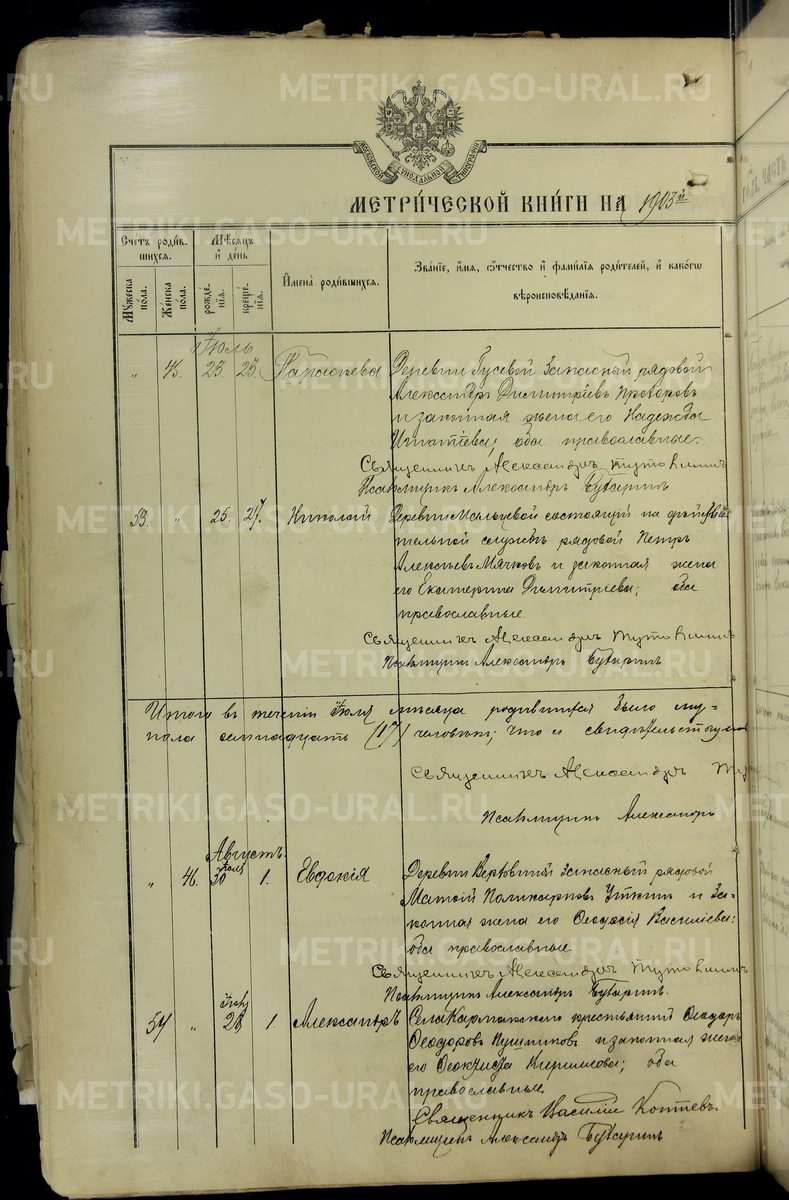 METRIKI.GASO-URAL.RU
МОСКОВСКОЙ СѴНОДАЛЬНОЙ ТИПОГРАФІИ
МЕТРИ́ЧЕСКОЙ КНИ́ГИ НА 1903й
Счетъ роди́вшихся.
Мѣсяцъ и҆ де́нь
И҆мена̀ роди́вшихся.
Зва́ніе, и҆́мя, ѻ҆́тчество и҆ фами́лія роди́телей, и҆ како́гѡ
вѣроисповѣ́данія.
Му́жеска по́ла.
Же́нска по́ла.
рожде́нія.
креще́нія.
Іюль
„ 45. 23. 25. Параскева Деревни Гусевой запасный рядовой
Александръ Димитріевъ
и законная жена его Надежда
Игнатіева; оба православные.
Священникъ Александръ
Псаломщикъ Александръ Бутаринъ
53. „ 25. 27. Николай Деревни Мальцевой состоящій на дѣйстви
тельной службѣ рядовой Петръ
Алексѣевъ Мячковъ и законная жена
его Екатерина Димитріева; оба
православные.
Священникъ Александръ
Псаломщикъ Александръ Бутаринъ
Итого въ теченіи Іюля мѣсяца родившихся было му-
пола семнадцать (17) человѣкъ; что и свидѣтельствуемъ
Священникъ Александръ
Псаломщикъ Александръ
Августъ
„ 46. Іюля 30 1. Евдокія Деревни запасный рядовой
Матѳій Поликарповъ Уткинъ и за-
конная жена его Ѳеодосія Василіева;
оба православные.
Священникъ Александръ
Псаломщикъ Александръ Бутаринъ.
54 „ Іюля 28 1. Александръ Села крестьянинъ Ѳеодоръ
Ѳеодоровъ и законная жена
его Ѳеоктиста Кириллова; оба
православные.
Священникъ Василій Коптевъ.
Псаломщикъ Александръ Бутаринъ